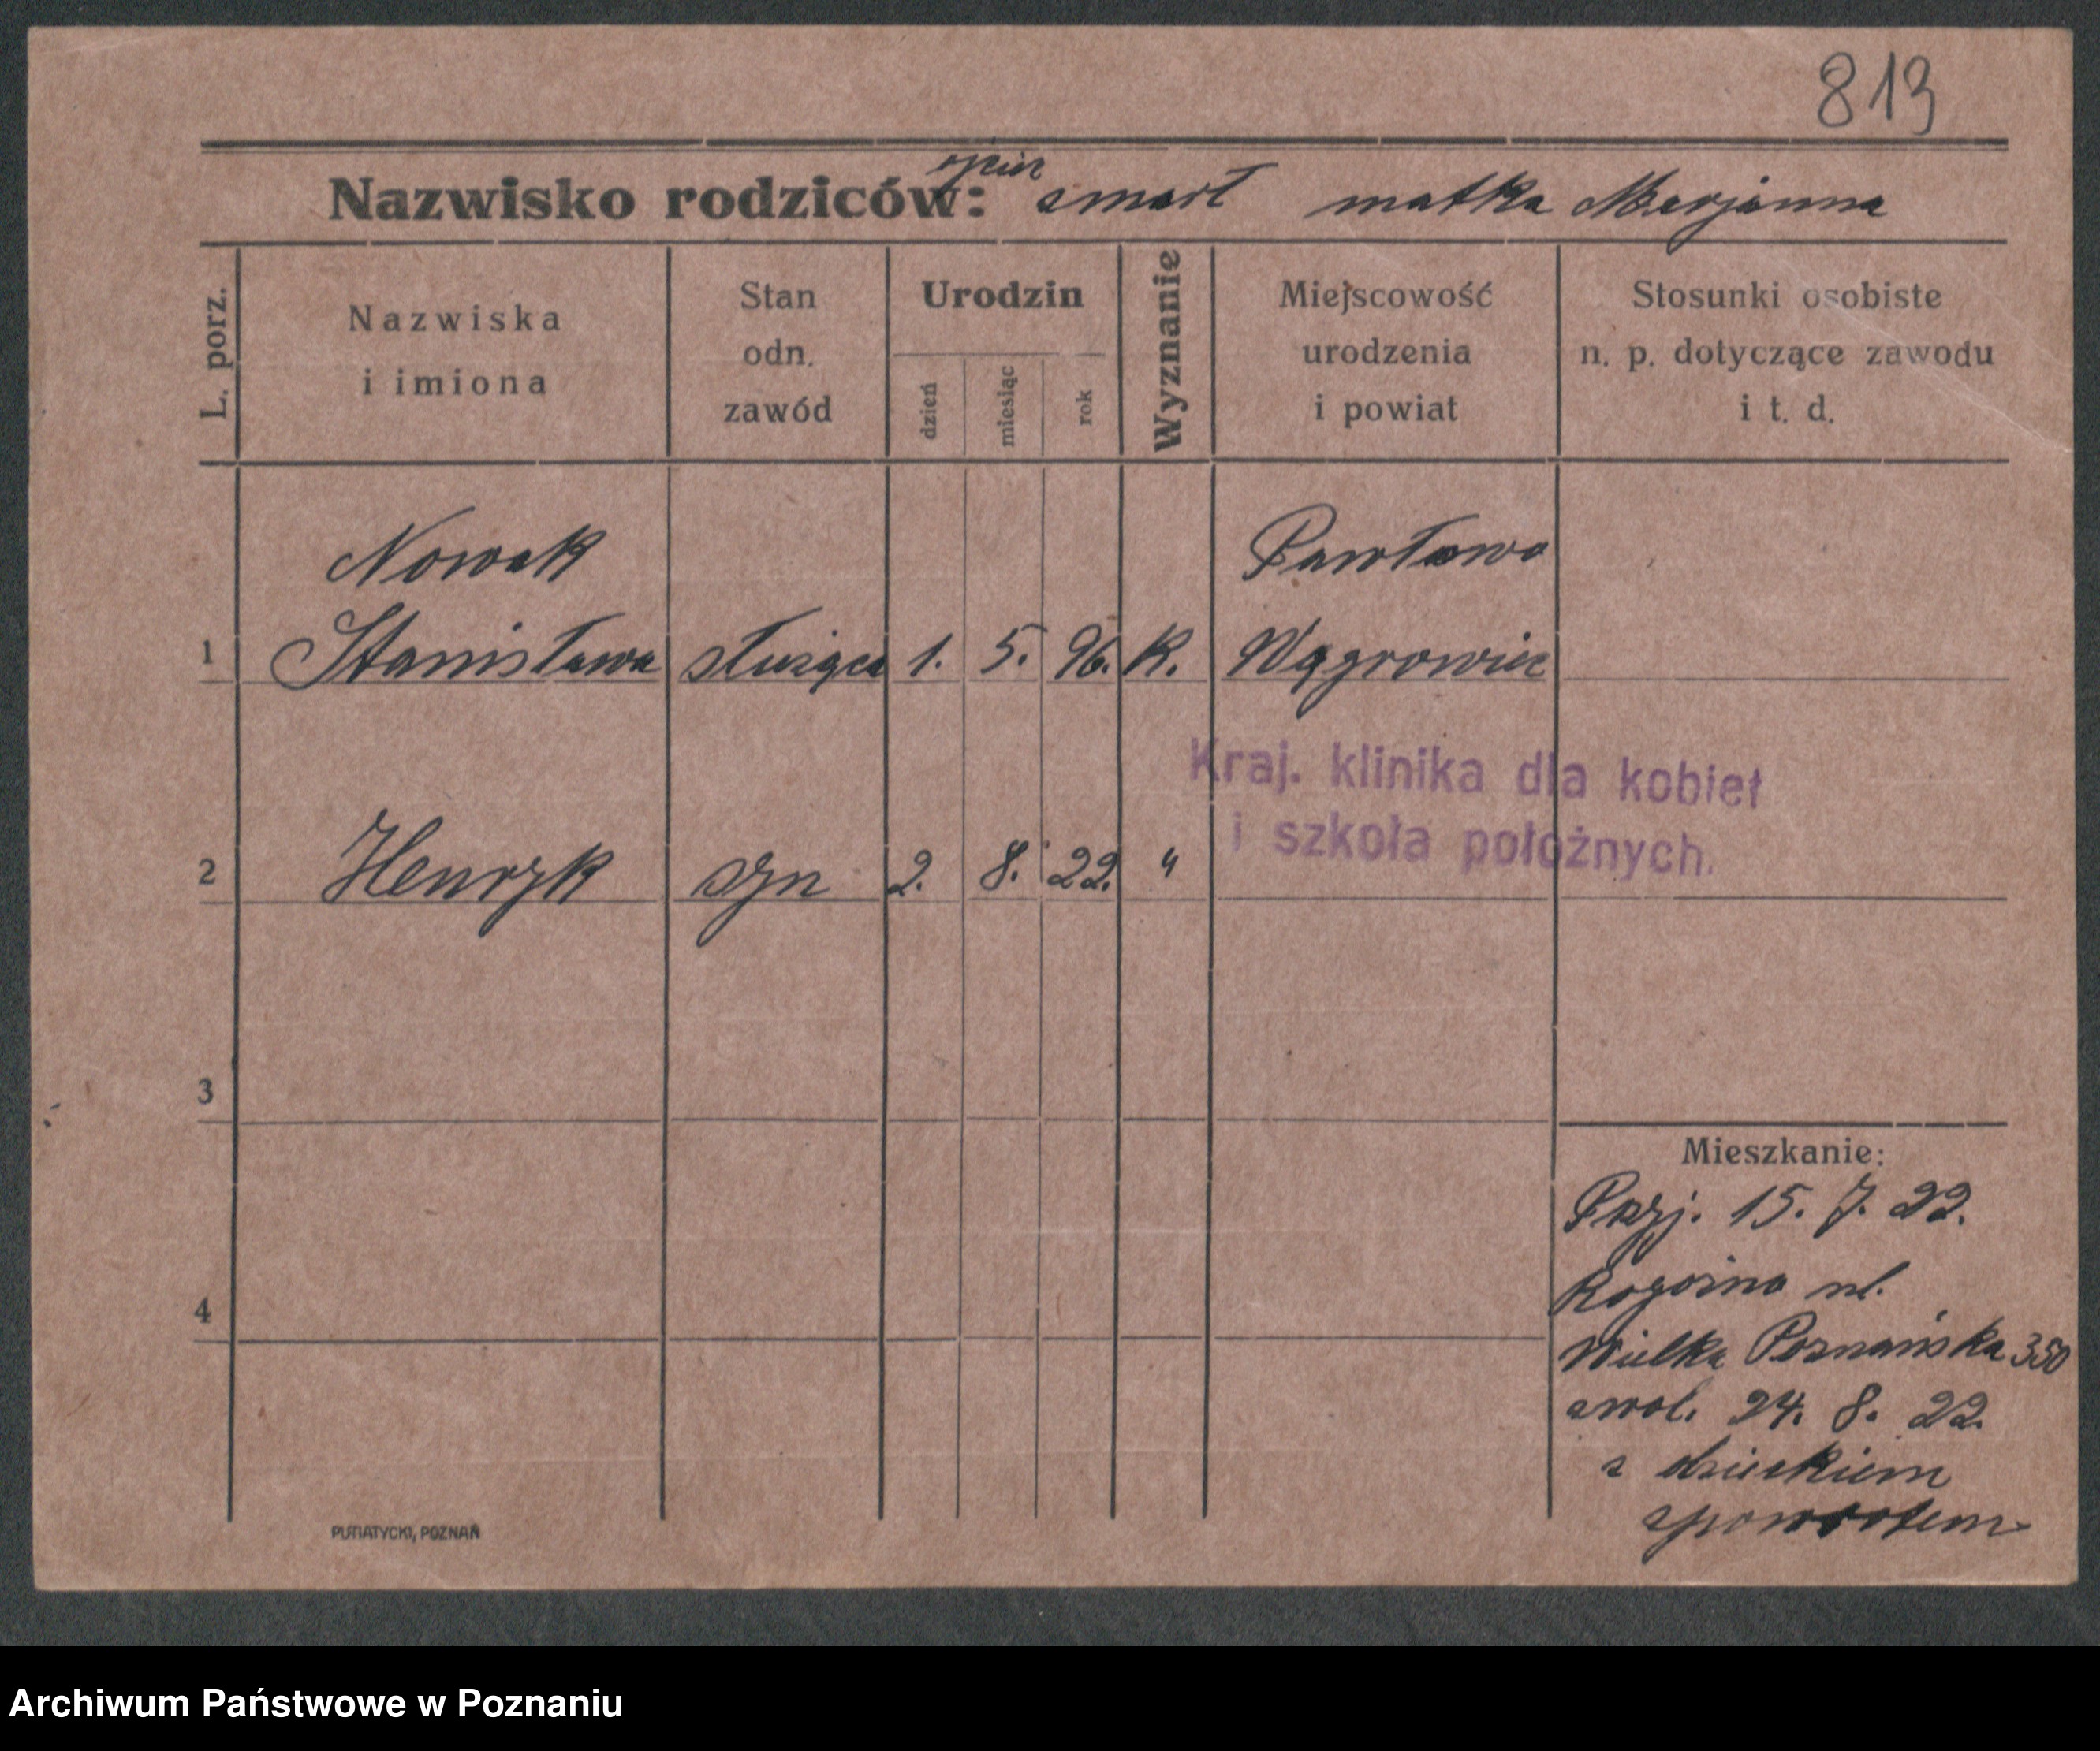 813
Nazwisko rodziców: ojciec zmarł matka Marjanna
L. porz.
Nazwiska
i imiona
Stan
odn.
zawód
Urodzin
dzień
miesiąc
rok
Wyznanie
Miejscowość
urodzenia
i powiat
Stosunki osobiste
n. p. dotyczące zawodu
i t. d.
Nowak Pawłowo
1 Stanisława służąca 1. 5. 96. K. Wągrowiec
Kraj. klinika dla kobiet
i szkoła położnych.
2 Henryk syn 2. 8. 22. "
3
4
Mieszkanie:
Przj. 15. 7. 22.
Rogoźno ul.
Wielka Poznańska 350
zwol. 24. 8. 22.
z dzieckiem
zpowrotem
PUTIATYCKI, POZNAŃ
Archiwum Państwowe w Poznaniu